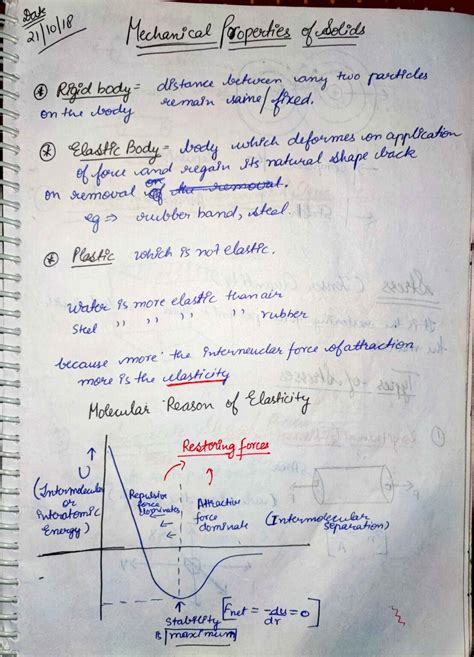 Date
21/10/18
Mechanical Properties of Solids
* Rigid body = distance between any two particles
on the body remain same/fixed.
* Elastic Body = body which deformes on application
of force and regain its natural shape back
on removal of the removal.
eg ⇒ rubber band, steel.
* Plastic which is not elastic.
water is more elastic than air
Steel " " " " rubber
because more the internuclear force of attraction
more is the elasticity
Molecular Reason of Elasticity
Restoring forces
U
(Intermolecular
or
Interatomic
Energy)
Repulsive
force
dominates
Attractive
force
dominate
(Intermolecular
Separation)
Stability
is maximum
[Fnet = -du/dr = 0]